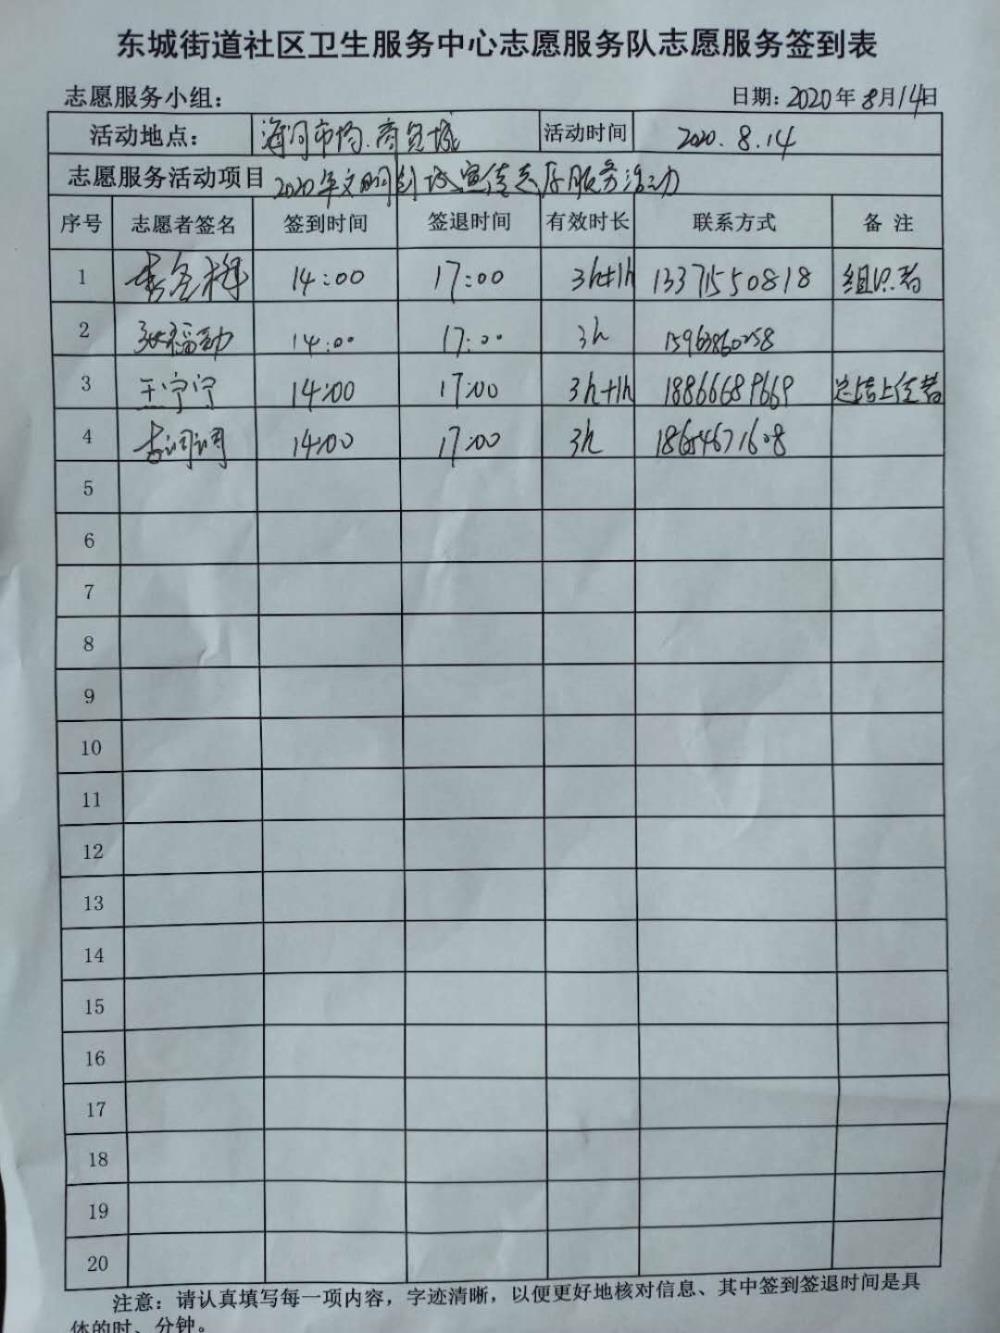 东城街道社区卫生服务中心志愿服务队志愿服务签到表
志愿服务小组： 日期：2020年8月14日
活动地点： 海河市场.商贸城 活动时间 2020.8.14
志愿服务活动项目 2020年文明创城宣传志愿服务活动
序号 志愿者签名 签到时间 签退时间 有效时长 联系方式 备 注
1 14:00 17:00 3h+1h 13371550818 组织者
2 张福勃 14:00 17:00 3h
3 王宁宁 14:00 17:00 3h+1h 18866689669 总结上传者
4 14:00 17:00 3h 18654671608
5
6
7
8
9
10
11
12
13
14
15
16
17
18
19
20
注意：请认真填写每一项内容，字迹清晰，以便更好地核对信息、其中签到签退时间是具
体的时、分钟。